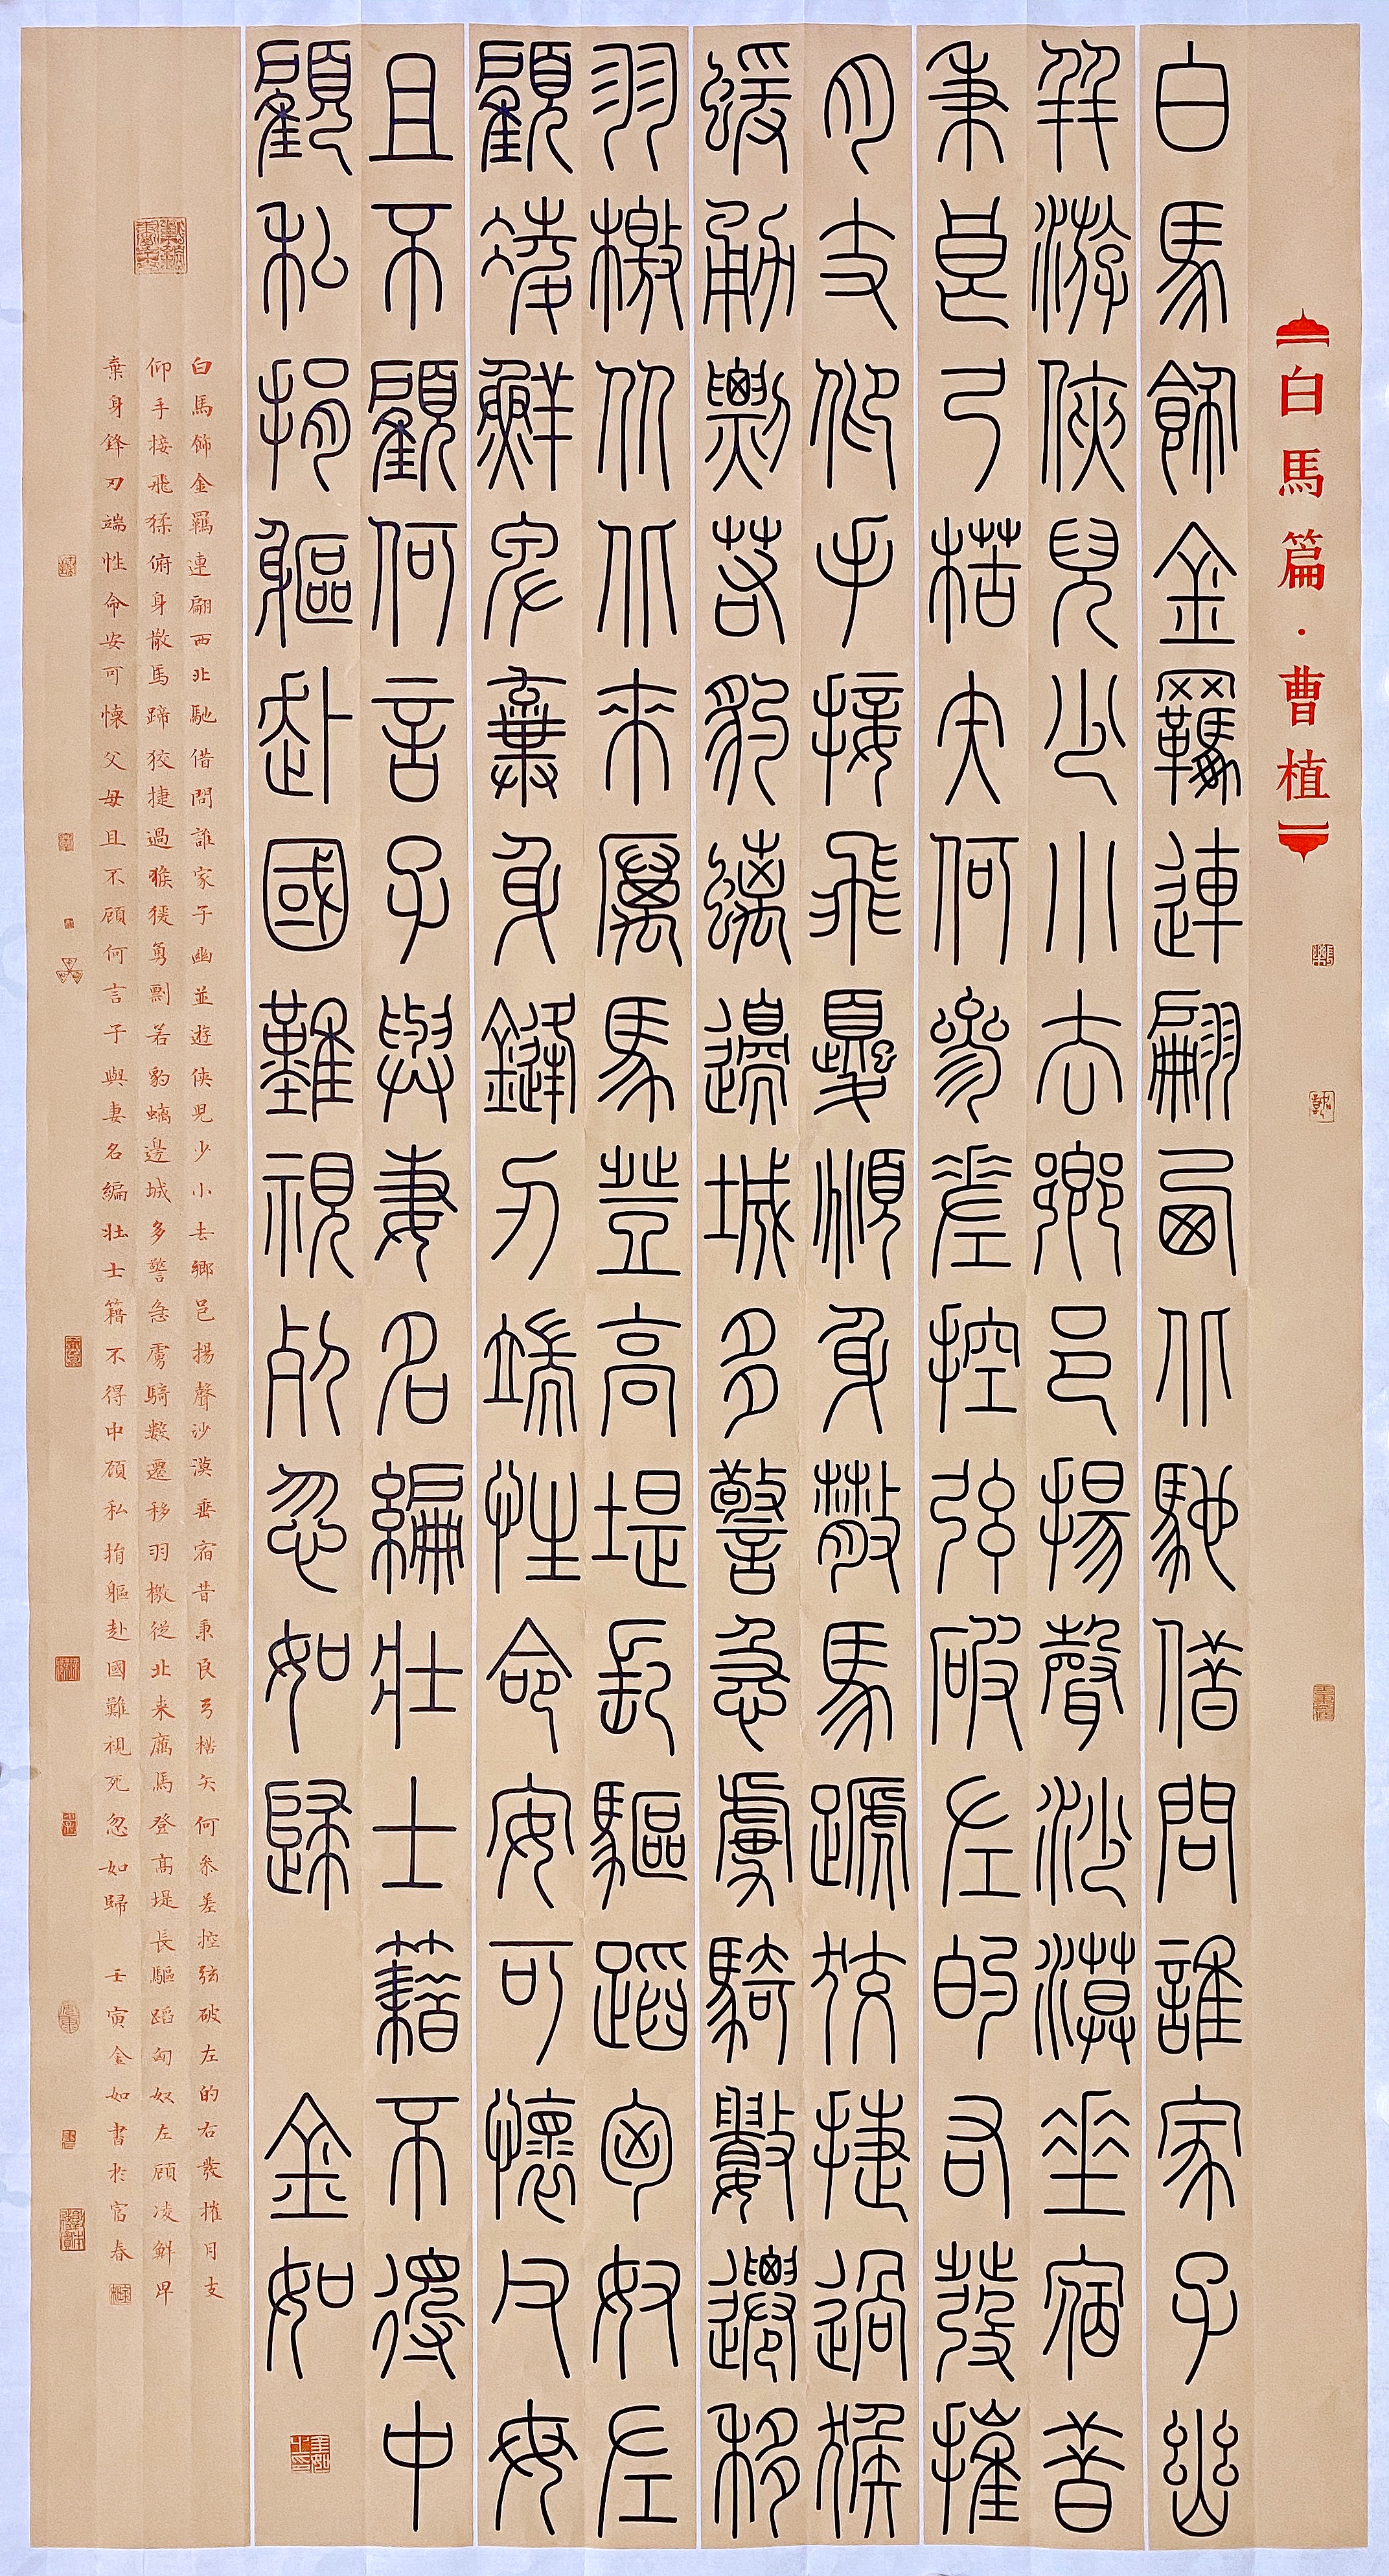 【白馬篇·曹植】
白馬飾金羈連翩西北馳借問誰家子幽
并游俠兒少小去鄉邑揚聲沙漠垂宿昔
秉良弓楛矢何參差控弦破左的右發摧
月支仰手接飛猱俯身散馬蹄狡捷過猴
蝯勇剽若豹螭邊城多警急虜騎數遷移
羽檄從北來厲馬登高堤長驅蹈匈奴左
顧凌鮮卑棄身鋒刃端性命安可懷父母
且不顧何言子與妻名編壯士籍不得中
顧私捐軀赴國難視死忽如歸 金如
白馬飾金羈連翩西北馳借問誰家子幽並遊俠兒少小去鄉邑揚聲沙漠垂宿昔秉良弓楛矢何參差控弦破左的右發摧月支
仰手接飛猱俯身散馬蹄狡捷過猴猨勇剽若豹螭邊城多警急虜騎數遷移羽檄從北来厲馬登高堤長驅蹈匈奴左顧凌鮮卑
棄身鋒刃端性命安可懷父母且不顧何言子與妻名編壯士籍不得中顧私捐軀赴國難視死忽如歸 壬寅金如書於宜春